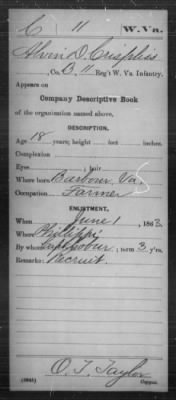 C 11 W. Va.
Alvin D. Crisplis
, Co. B, 11 Reg't W. Va. Infantry.
Appears on
Company Descriptive Book
of the organization named above.
DESCRIPTION.
Age 18 years; height feet inches.
Complexion
Eyes ; hair
Where born Barbour, Va.
Occupation Farmer
ENLISTMENT.
When June 1, 1863.
Where Philippi
By whom ; term 3 y'rs.
Remarks: Recruit.
O. T. Taylor
Copyist.